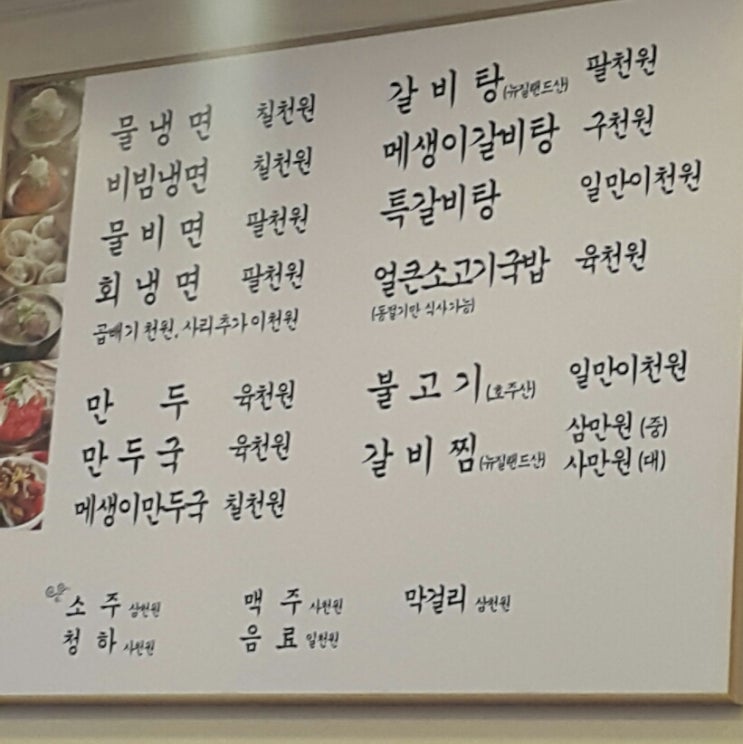 물냉면 칠천원
비빔냉면 칠천원
물비면 팔천원
회냉면 팔천원
곱배기 천원, 사리추가 이천원
만두 육천원
만두국 육천원
메생이만두국 칠천원
갈비탕 (뉴질랜드산) 팔천원
메생이갈비탕 구천원
특갈비탕 일만이천원
얼큰소고기국밥 육천원
(동절기만 식사가능)
불고기 (호주산) 일만이천원
갈비찜 (뉴질랜드산) 삼만원 (중)
사만원 (대)
소주 삼천원 맥주 사천원 막걸리 삼천원
청하 사천원 음료 일천원